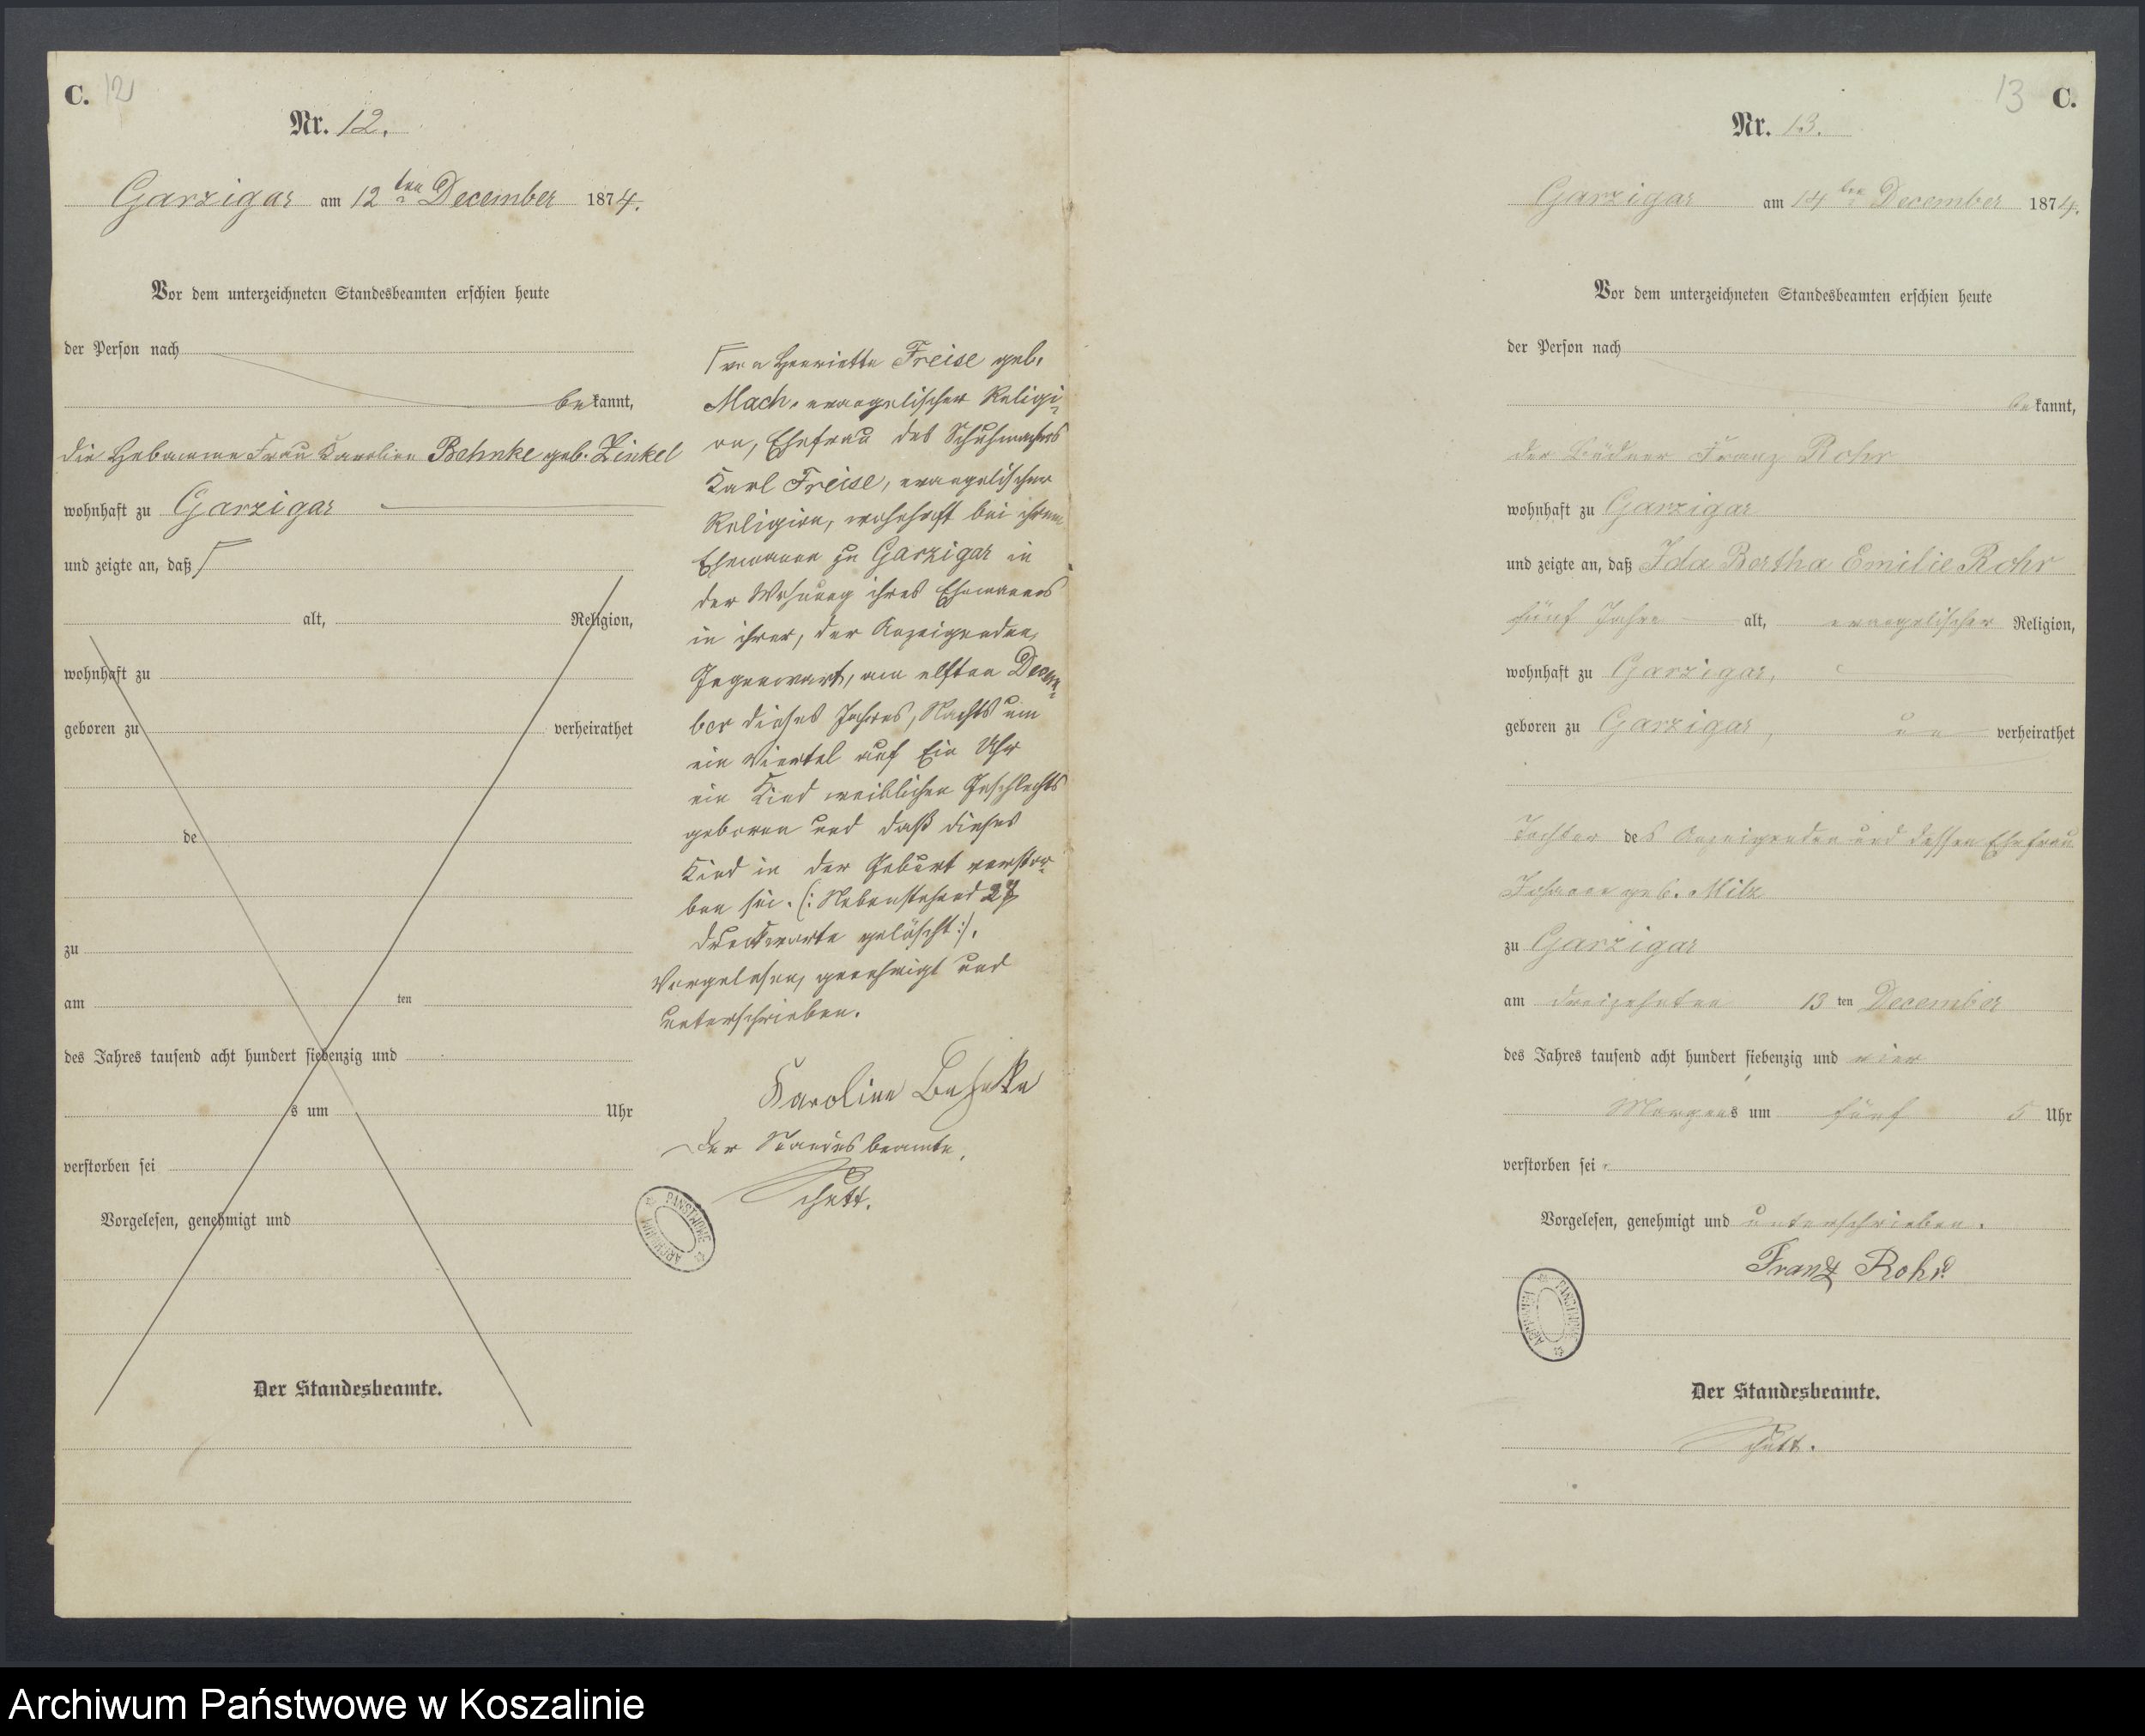 C. 12
Nr. 12.
Garzigar am 12ten December 1874.
Vor dem unterzeichneten Standesbeamten erschien heute
der Person nach
bekannt,
die Hebamme Frau Karoline Behnke geb. Zinkel
wohnhaft zu Garzigar
und zeigte an, daß ⌈
alt, Religion,
wohnhaft zu
geboren zu verheirathet
de
zu
am ten
des Jahres tausend acht hundert siebenzig und
s um Uhr
verstorben sei
Vorgelesen, genehmigt und
Der Standesbeamte.
⌈ von Henriette Freise geb.
Mach, evangelischer Religi-
on, Ehefrau des Schuhmachers
Karl Freise, evangelischer
Religion, wohnhaft bei ihrem
Ehemanne zu Garzigar in
der Wohnung ihres Ehemannes
in ihrer, der Anzeigenden,
Gegenwart, am elften Decem-
ber dieses Jahres, Nachts um
ein Viertel auf Ein Uhr
ein Kind weiblichen Geschlechts
geboren und daß dieses
Kind in der Geburt verstor-
ben sei. (: Nebenstehend 27
Druckworte gelöscht :).
Vorgelesen, genehmigt und
unterschrieben.
Karoline Behnke
Der Standesbeamte.
Schutt.
ARCHIWUM PAŃSTWOWE
13 C.
Nr. 13.
Garzigar am 14ten December 1874.
Vor dem unterzeichneten Standesbeamten erschien heute
der Person nach
bekannt,
der Büdner Franz Rohr
wohnhaft zu Garzigar
und zeigte an, daß Ida Bertha Emilie Rohr
fünf Jahre alt, evangelischer Religion,
wohnhaft zu Garzigar,
geboren zu Garzigar, un verheirathet
Tochter des Anzeigenden und dessen Ehefrau
Johanne geb. Milz
zu Garzigar
am dreizehnten 13 ten December
des Jahres tausend acht hundert siebenzig und vier
Morgens um fünf 5 Uhr
verstorben sei.
Vorgelesen, genehmigt und unterschrieben.
Franz Rohr
ARCHIWUM PAŃSTWOWE
Der Standesbeamte.
Schutt.
Archiwum Państwowe w Koszalinie